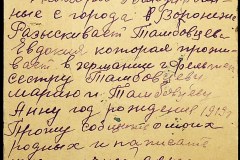 ные с города в Воронеже
Разыскивает Тамбовцева
Евдокия которая прожи-
вает в германии
сестру Тамбовцеву
марию и Тамбовцеву
Анну год рождения 1913г
Прошу сообщите о моих
родных и